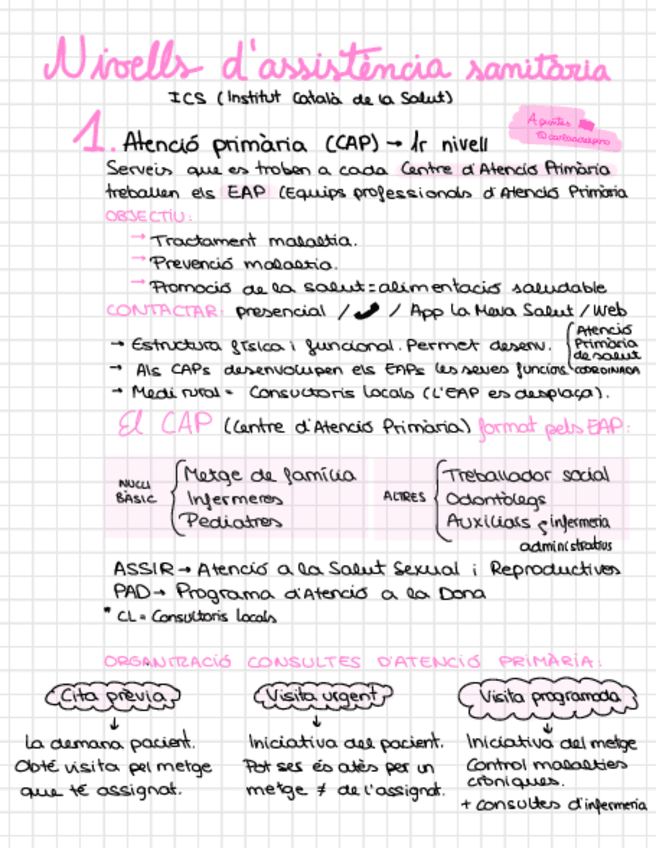 Nivells d'assistència sanitària
ICS (Institut Català de la Salut)
Apuntes
1. Atenció primària (CAP) → 1r nivell
Serveis que es troben a cada Centre d'Atenció Primària
treballen els EAP (Equips professionals d'Atenció Primària
OBJECTIU:
→ Tractament malaltia.
→ Prevenció malaltia.
→ Promoció de la salut = alimentació saludable
CONTACTAR: presencial / 📞 / App La Meva Salut / Web
→ Estructura física i funcional. Permet desenv. (Atenció Primària de salut COORDINADA
→ Als CAPs desenvolupen els EAPs les seves funcions
→ Medi rural = Consultoris locals (L'EAP es desplaça).
El CAP (Centre d'Atenció Primària) format pels EAP:
NUCLI BÀSIC { Metge de família
Infermeres
Pediatres
ALTRES { Treballador social
Odontòlegs
Auxiliars { infermeria
administratius
ASSIR → Atenció a la Salut Sexual i Reproductives
PAD → Programa d'Atenció a la Dona
* CL = Consultoris locals
ORGANITZACIÓ CONSULTES D'ATENCIÓ PRIMÀRIA:
Cita prèvia
↓
La demana pacient.
Obté visita pel metge
que té assignat.
Visita urgent
↓
Iniciativa del pacient.
Pot ser és atès per un
metge ≠ de l'assignat.
Visita programada
↓
Iniciativa del metge
Control malalties
cròniques.
+ consultes d'infermeria